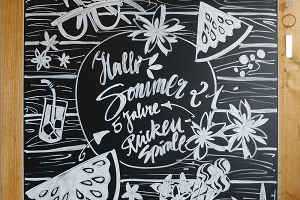 Hallo
Sommer &
5 Jahre
Rücken-
Spirale